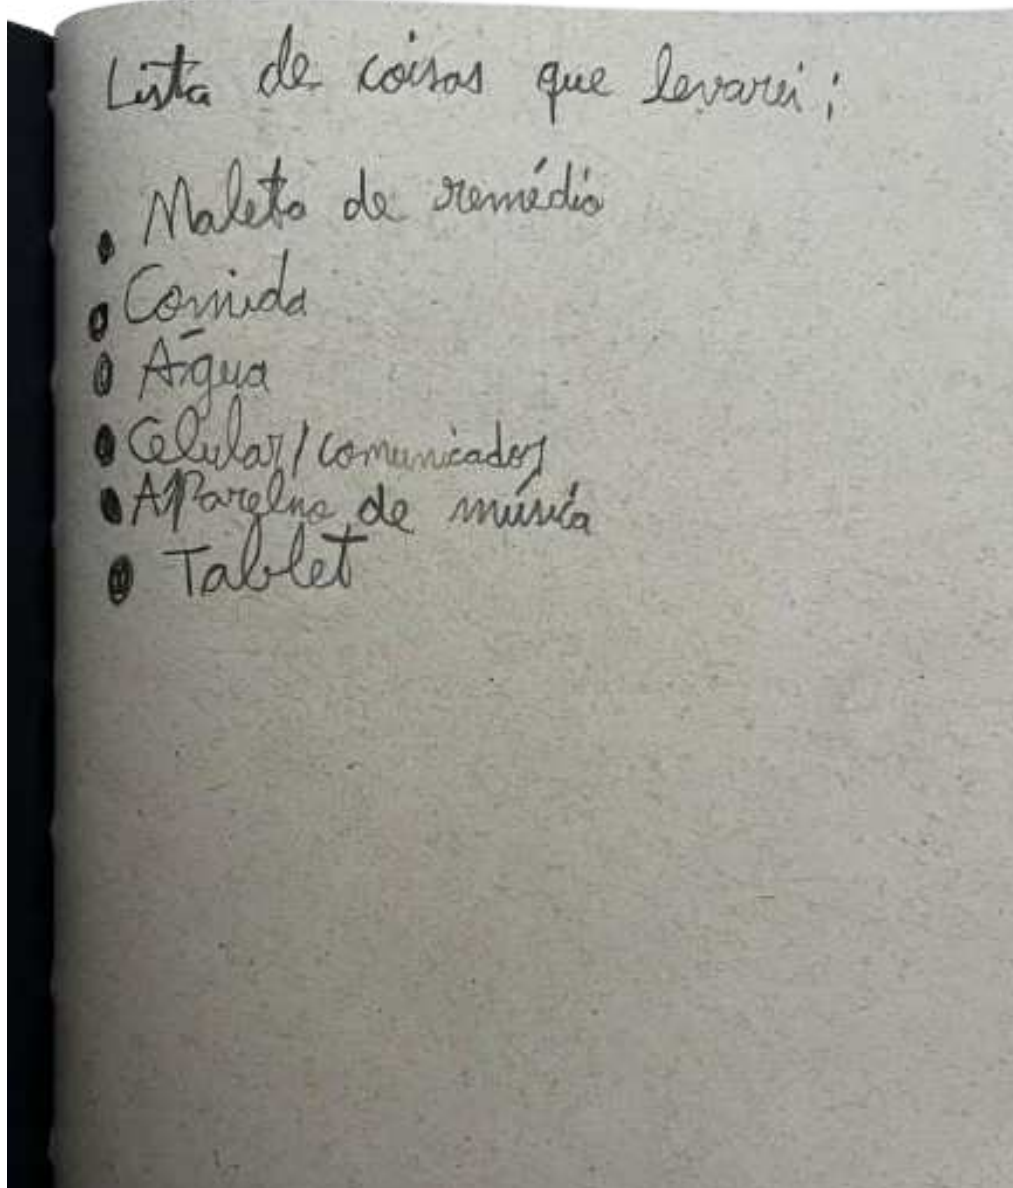 Lista de coisas que levarei:
• Maleta de remédio
• Comida
• Água
• Celular/comunicador
• Aparelho de música
• Tablet